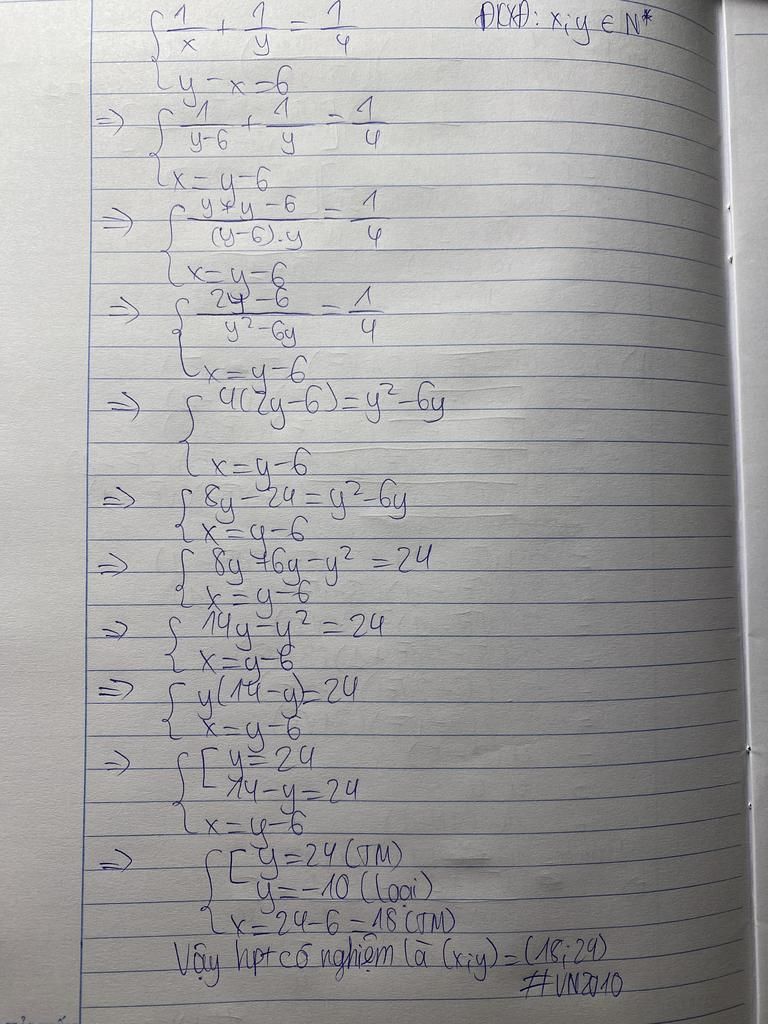 { 1/x + 1/y = 1/4 ĐKXĐ: x;y ∈ N*
{ y - x = 6
=> { 1/(y-6) + 1/y = 1/4
{ x = y - 6
=> { (y+y-6)/((y-6).y) = 1/4
{ x = y - 6
=> { (2y-6)/(y²-6y) = 1/4
{ x = y - 6
=> { 4(2y-6) = y²-6y
{ x = y - 6
=> { 8y - 24 = y²-6y
{ x = y - 6
=> { 8y+6y-y² = 24
{ x = y - 6
=> { 14y-y² = 24
{ x = y - 6
=> { y(14-y) = 24
{ x = y - 6
=> { [ y = 24
[ 14-y = 24
{ x = y - 6
=> { [ y = 24 (TM)
[ y = -10 (loại)
{ x = 24-6 = 18 (TM)
Vậy hpt có nghiệm là (x;y) = (18;24)
#VN2010